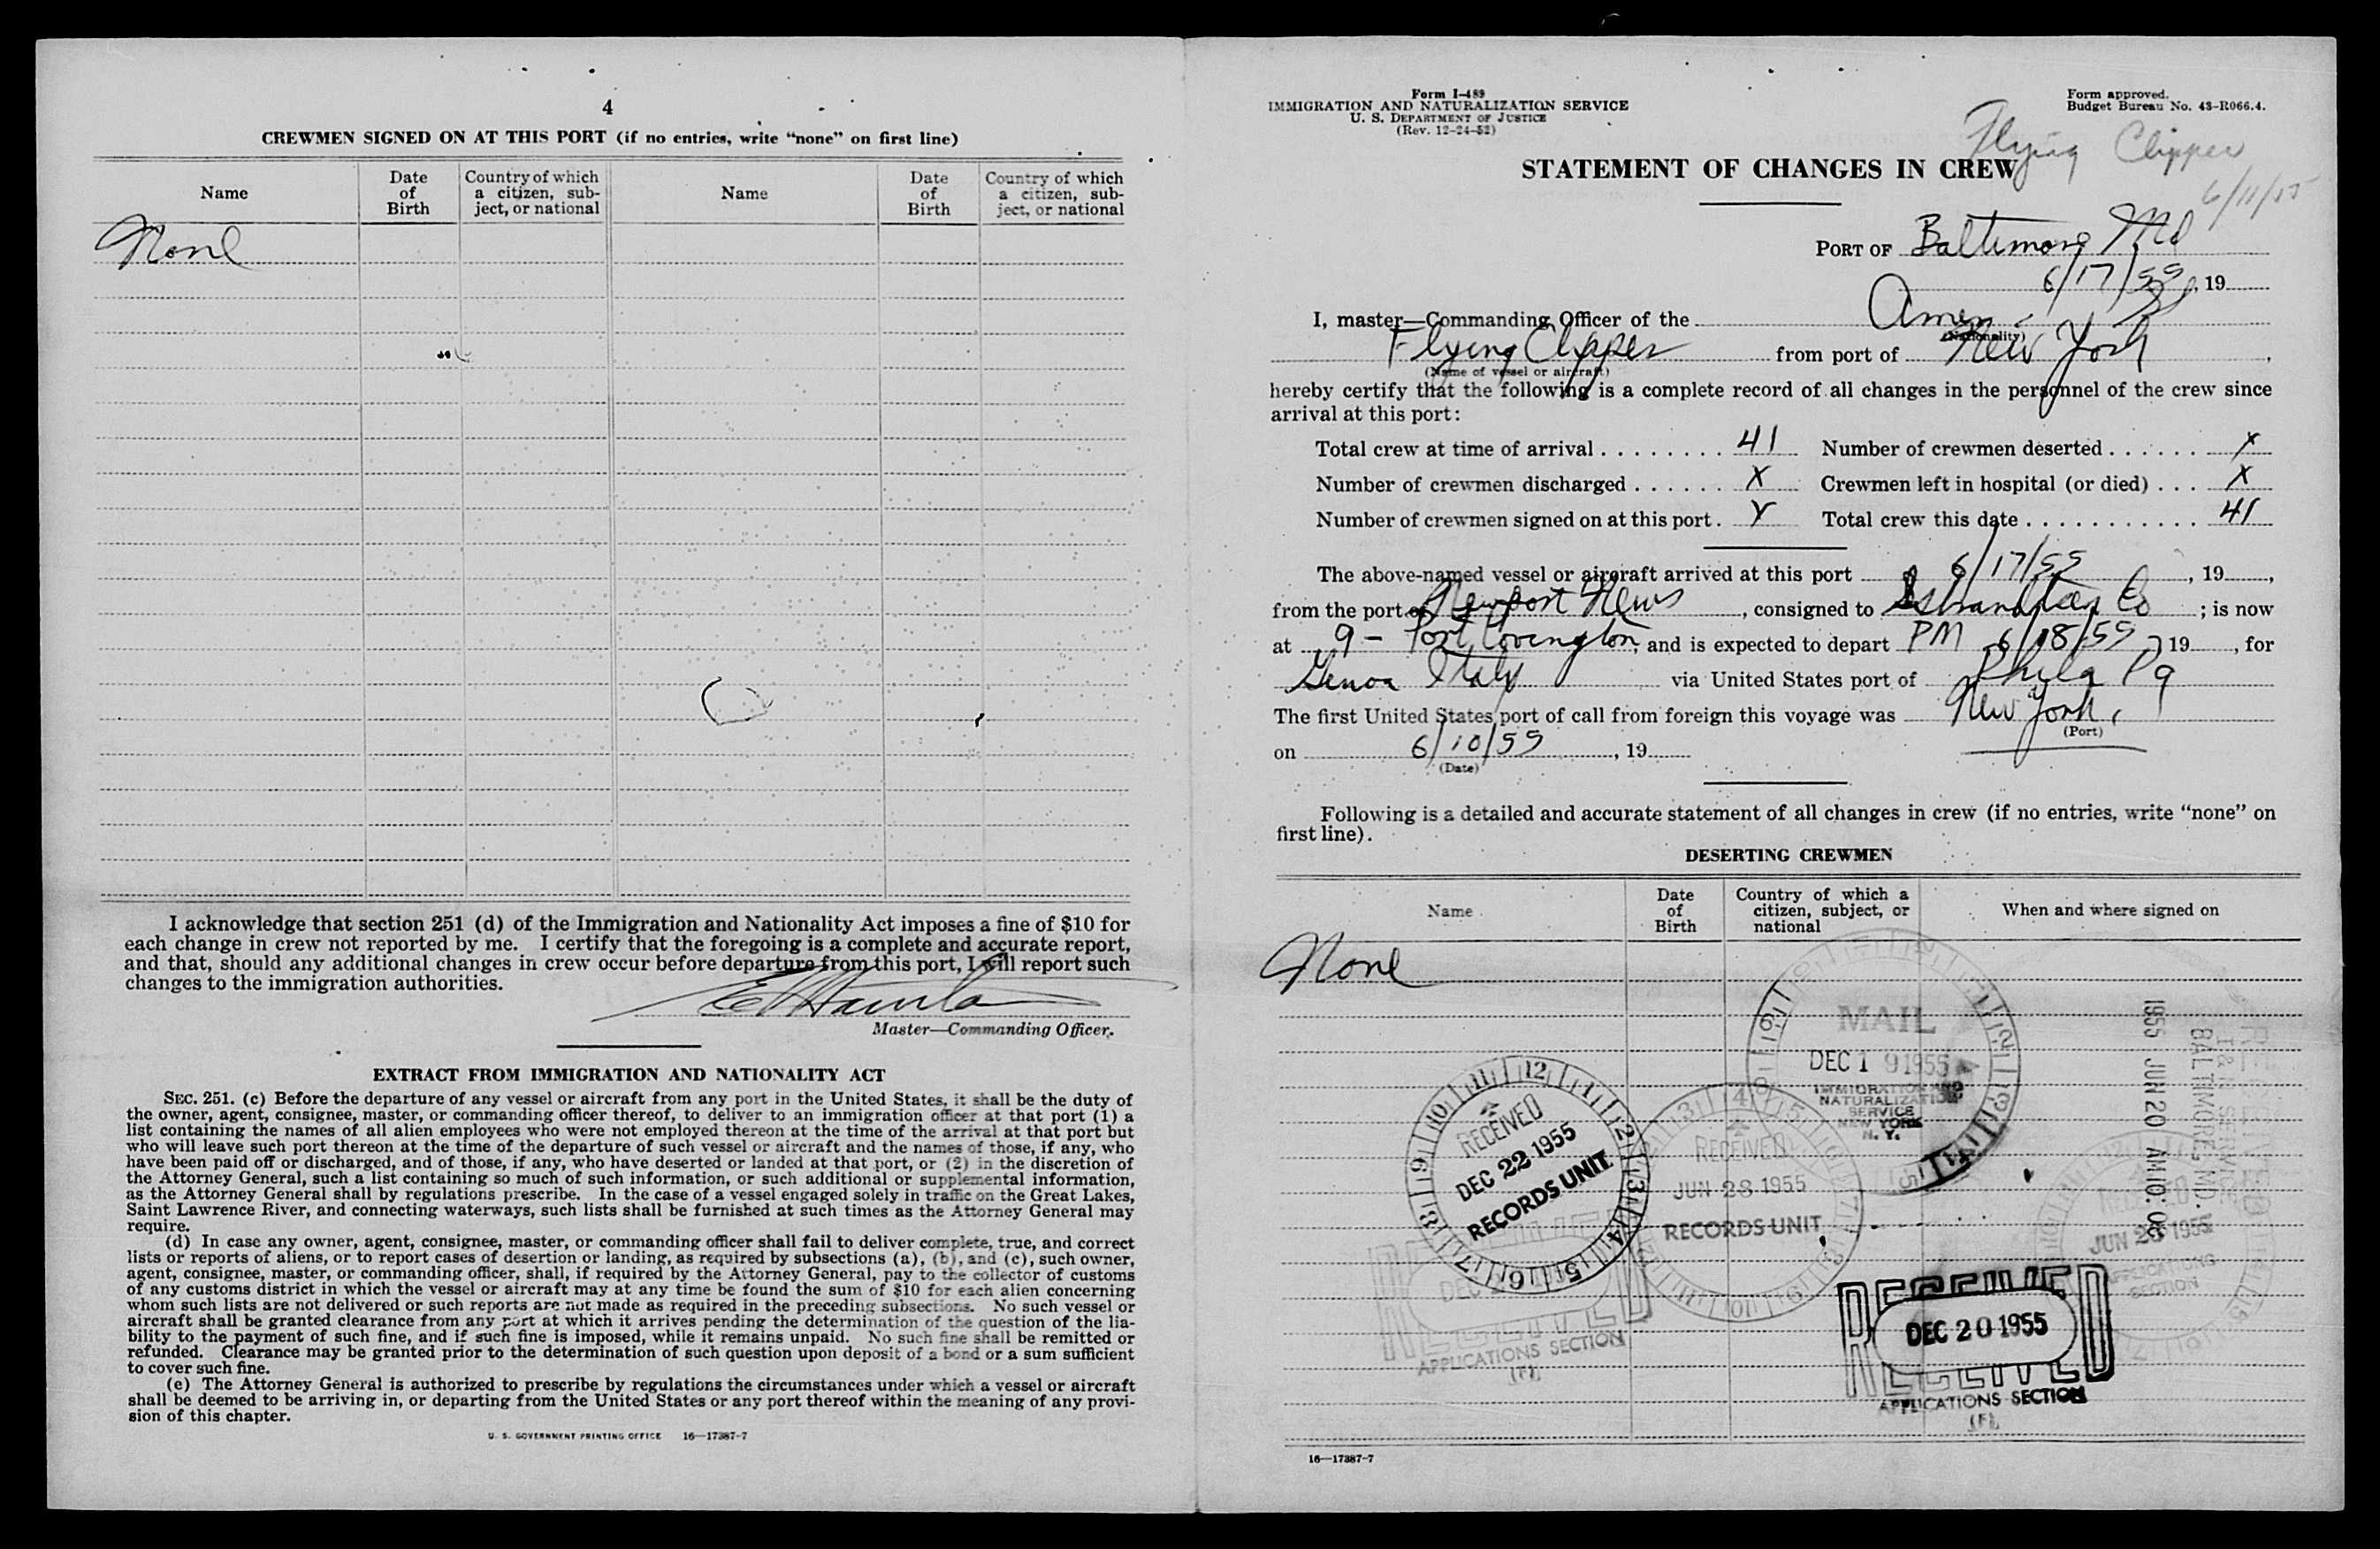 4
CREWMEN SIGNED ON AT THIS PORT (if no entries, write “none” on first line)
Name
Date of Birth
Country of which a citizen, sub-ject, or national
Name
Date of Birth
Country of which a citizen, sub-ject, or national
None
I acknowledge that section 251 (d) of the Immigration and Nationality Act imposes a fine of $10 for
each change in crew not reported by me. I certify that the foregoing is a complete and accurate report,
and that, should any additional changes in crew occur before departure from this port, I will report such
changes to the immigration authorities.
Master—Commanding Officer.
EXTRACT FROM IMMIGRATION AND NATIONALITY ACT
SEC. 251. (c) Before the departure of any vessel or aircraft from any port in the United States, it shall be the duty of
the owner, agent, consignee, master, or commanding officer thereof, to deliver to an immigration officer at that port (1) a
list containing the names of all alien employees who were not employed thereon at the time of the arrival at that port but
who will leave such port thereon at the time of the departure of such vessel or aircraft and the names of those, if any, who
have been paid off or discharged, and of those, if any, who have deserted or landed at that port, or (2) in the discretion of
the Attorney General, such a list containing so much of such information, or such additional or supplemental information,
as the Attorney General shall by regulations prescribe. In the case of a vessel engaged solely in traffic on the Great Lakes,
Saint Lawrence River, and connecting waterways, such lists shall be furnished at such times as the Attorney General may
require.
(d) In case any owner, agent, consignee, master, or commanding officer shall fail to deliver complete, true, and correct
lists or reports of aliens, or to report cases of desertion or landing, as required by subsections (a), (b), and (c), such owner,
agent, consignee, master, or commanding officer, shall, if required by the Attorney General, pay to the collector of customs
of any customs district in which the vessel or aircraft may at any time be found the sum of $10 for each alien concerning
whom such lists are not delivered or such reports are not made as required in the preceding subsections. No such vessel or
aircraft shall be granted clearance from any port at which it arrives pending the determination of the question of the lia-
bility to the payment of such fine, and if such fine is imposed, while it remains unpaid. No such fine shall be remitted or
refunded. Clearance may be granted prior to the determination of such question upon deposit of a bond or a sum sufficient
to cover such fine.
(e) The Attorney General is authorized to prescribe by regulations the circumstances under which a vessel or aircraft
shall be deemed to be arriving in, or departing from the United States or any port thereof within the meaning of any provi-
sion of this chapter.
U. S. GOVERNMENT PRINTING OFFICE 16—17387-7
Form I-489
IMMIGRATION AND NATURALIZATION SERVICE
U. S. DEPARTMENT OF JUSTICE
(Rev. 12-24-52)
Form approved.
Budget Bureau No. 43-R066.4.
Flying Clipper
6/11/55
STATEMENT OF CHANGES IN CREW
PORT OF Baltimore Md
6/17/55, 19
I, master—Commanding Officer of the Amer.
(Nationality)
Flying Clipper from port of New York,
(Name of vessel or aircraft)
hereby certify that the following is a complete record of all changes in the personnel of the crew since
arrival at this port:
Total crew at time of arrival . . . . . . . . 41 Number of crewmen deserted . . . . . . X
Number of crewmen discharged . . . . . . X Crewmen left in hospital (or died) . . . X
Number of crewmen signed on at this port . X Total crew this date . . . . . . . . . . . 41
The above-named vessel or aircraft arrived at this port 6/17/55, 19,
from the port of Newport News, consigned to Co ; is now
at 9 – Port Covington, and is expected to depart PM 6/18/55, 19, for
Genoa Italy via United States port of Phila Pa
The first United States port of call from foreign this voyage was New York,
(Port)
on 6/10/55, 19
(Date)
Following is a detailed and accurate statement of all changes in crew (if no entries, write “none” on
first line).
DESERTING CREWMEN
Name
Date of Birth
Country of which a citizen, subject, or national
When and where signed on
None
MAIL
DEC 19 1955
IMMIGRATION AND
NATURALIZATION
SERVICE
NEW YORK
N. Y.
RECEIVED
DEC 22 1955
RECORDS UNIT
RECEIVED
JUN 28 1955
RECORDS UNIT
BALTIMORE, MD.
1955 JUN 20 AM 10: 06
RECEIVED
JUN 1955
APPLICATIONS
SECTION
DEC
APPLICATIONS SECTION
RECEIVED
DEC 20 1955
APPLICATIONS SECTION
16—17387-7